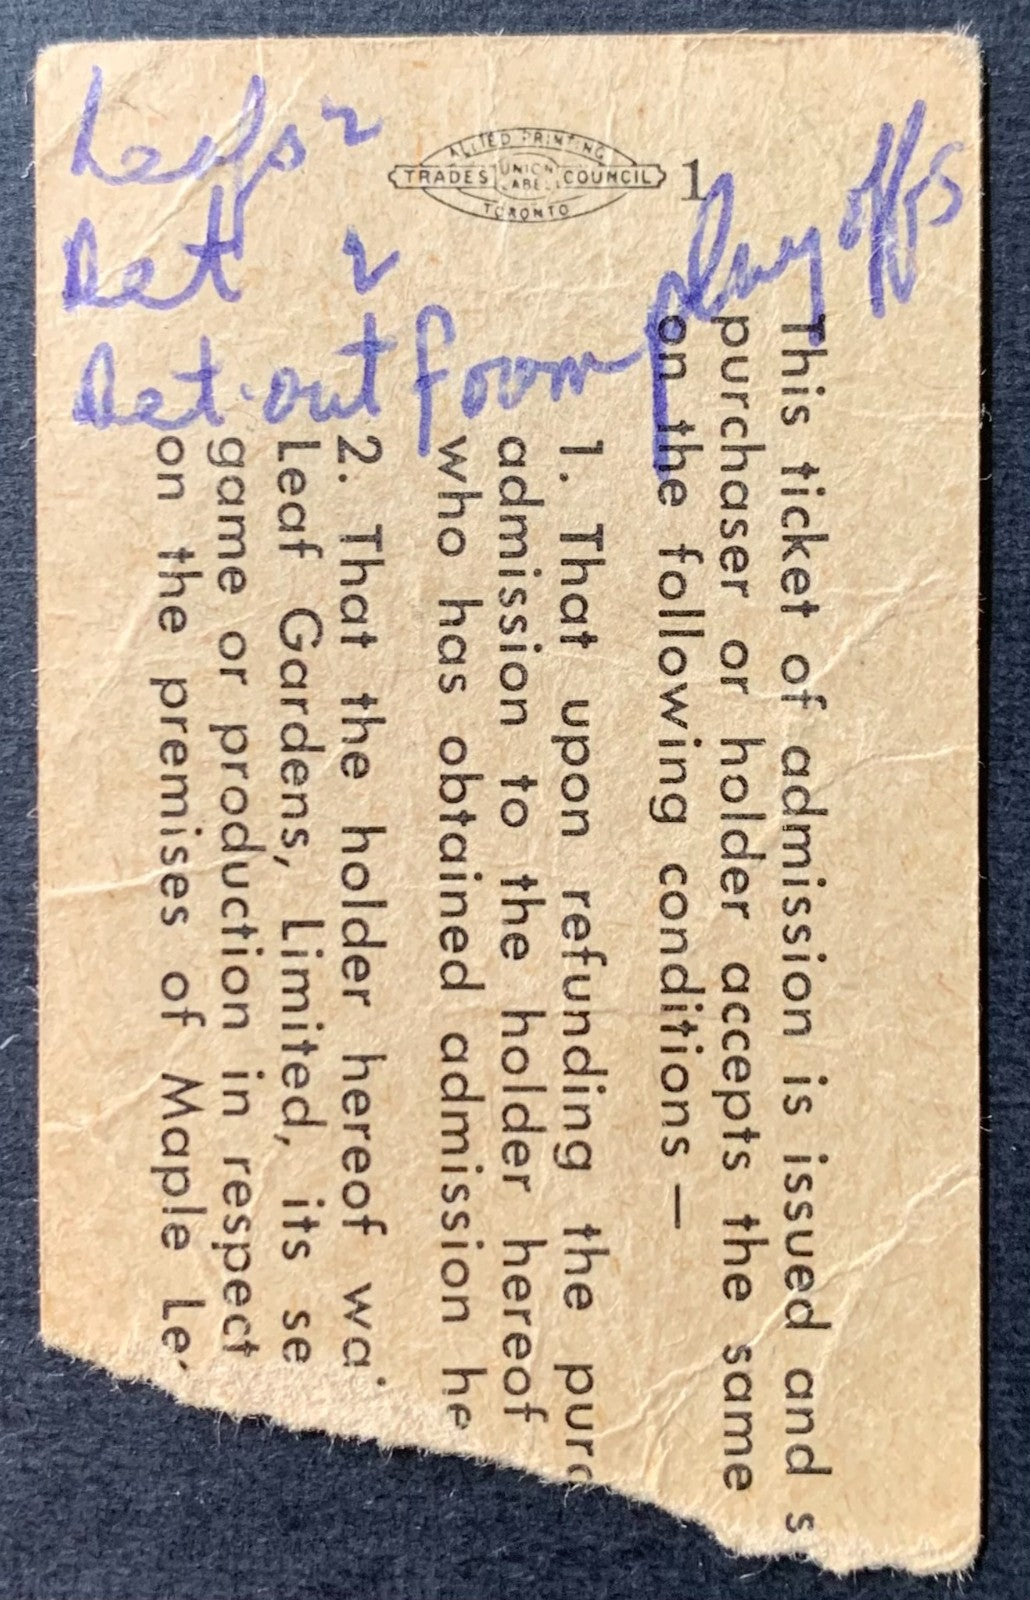 Leafs 2
Det 2
Det out from play offs
ALLIED PRINTING
TRADES UNION LABEL COUNCIL
TORONTO
1
This ticket of admission is issued and s
purchaser or holder accepts the same
on the following conditions —
1. That upon refunding the purc
admission to the holder hereof
who has obtained admission he
2. That the holder hereof wa
Leaf Gardens, Limited, its se
game or production in respect
on the premises of Maple Le